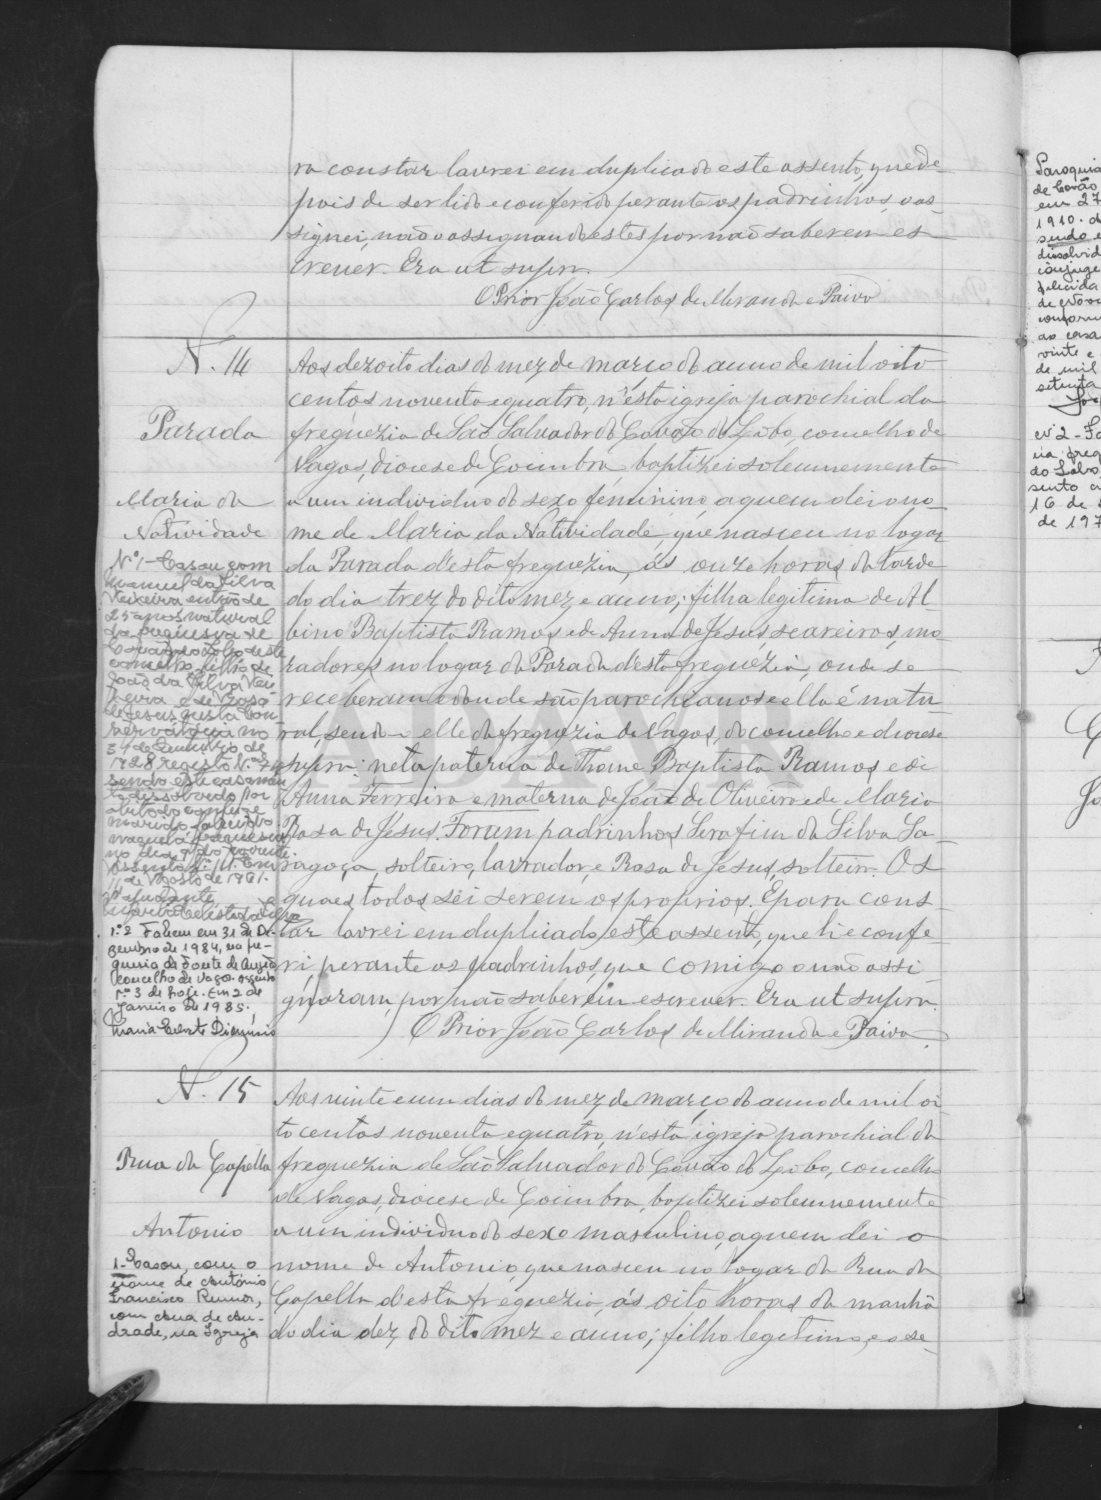 ra constar lavrei em duplicado este assento, que de-
pois de ser lido e conferido perante os padrinhos, o as-
signei, não o assignando estes por não saberem es-
crever. Era ut supra.
O Prior João Carlos de Miranda e Paiva
N. 14
Parada
Maria da
Natividade
Aos dezoito dias do mez de março do anno de mil oito
centos noventa e quatro, n'esta igreja parochial da
freguezia de São Salvador do Covão do Lobo, concelho de
Vagos, diocese de Coimbra, baptizei solemnemente
a um individuo do sexo feminino, a quem dei o no-
me de Maria da Natividade, que nasceu no logar
da Parada d'esta freguezia, ás onze horas da tarde
do dia trez do dito mez e anno; filha legitima de Al-
bino Baptista Ramos e de Anna de Jesus, seareiros, mo-
radores no logar da Parada d'esta freguezia, onde se
receberam e donde são parochianos e ella é natu-
ral, sendo elle da freguezia de Vagos, do concelho e diocese
supra: neta paterna de Thome Baptista Ramos e de
Anna Ferreira e materna de João de Oliveira e de Maria
Rosa de Jesus. Foram padrinhos Serafim da Silva Sa-
ragoça, solteiro, lavrador, e Rosa de Jesus, solteira. Os
quaes todos sei serem os proprios. E para cons-
tar lavrei em duplicado este assento, que li e confe-
ri, perante os padrinhos, que comigo o não assi-
gnaram, por não saberem escrever. Era ut supra.
O Prior João Carlos de Miranda e Paiva.
Nº 1 - Casou com
Manuel da Silva
Teixeira então de
25 anos natural
da freguesia de
Covão do Lobo deste
concelho, filho de
João da Silva Tei-
xeira e de Rosa
de Jesus, nesta Con-
servatória no
31 de Dezembro de
1928 registo N.º
sendo este casamen
to dissolvido por
óbito do conjuge
marido falecido
naquela freguesia
no dia do corrente
Assento N.º 14. Em
de Agosto de 1961.
O ajudante,
1.º 2 Faleceu em 31 de De-
zembro de 1984, na fre-
guesia de Fonte de Angeão
concelho de Vagos. Assento
n.º 3 de hoje. Em 2 de
Janeiro de 1985.
N. 15
Rua da Capella
Antonio
Aos vinte e um dias do mez de março do anno de mil oi-
to centos noventa e quatro, n'esta igreja parochial da
freguezia de São Salvador do Covão do Lobo, concelho
de Vagos, diocese de Coimbra, baptizei solemnemente
a um individuo do sexo masculino, a quem dei o
nome de Antonio, que nasceu no logar da Rua da
Capella d'esta freguezia, ás oito horas da manhã
do dia dez do dito mez e anno; filho legitimo, e o se-
1- Casou, com o
nome de António
Francisco Rumor,
com Ana de An-
drade, na Igreja
Paroquia
de Covão
em 27
1910. d
sendo e
dissolvid
conjuge
falecida
de Novo
conform
ao casa
vinte e
de mil
setenta
nº 2 - Fa
na freg
do Lobo
sento n
16 de
de 197